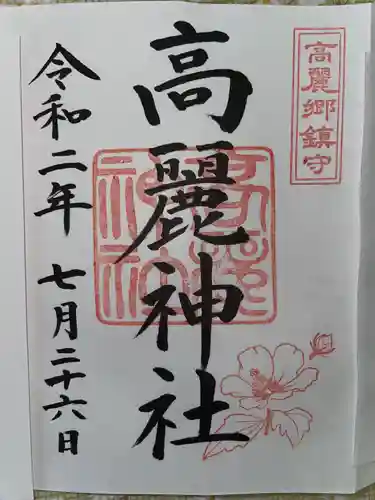 高麗郷鎮守
高麗神社
令和二年 七月二十六日
高麗神社